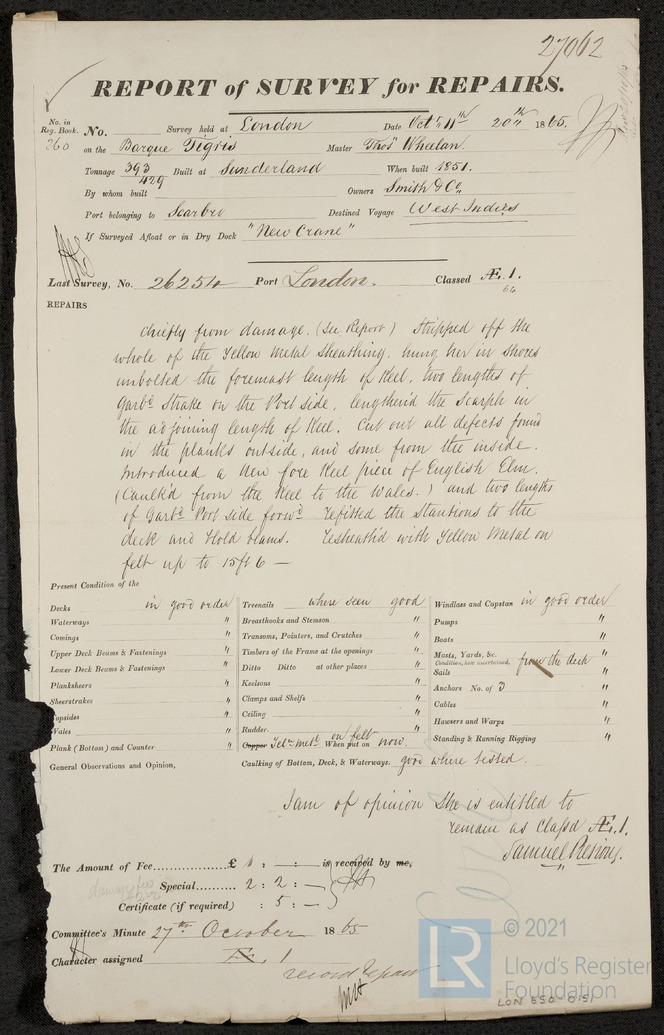 27062
REPORT of SURVEY for REPAIRS.
No. in Reg. Book. No. Survey held at London Date Octr 11th 20th 1865.
260 on the Barque Tigris Master Thos Wheelan.
Tonnage 393 Built at Sunderland When built 1851.
429
By whom built Owners Smith & Co.
Port belonging to Scarbro Destined Voyage West Indies
If Surveyed Afloat or in Dry Dock "New Crane"
Last Survey, No. 26254 Port London. Classed Æ 1.
66
REPAIRS
Chiefly from damage. (See Report) Stripped off the
whole of the Yellow Metal Sheathing, hung her in Shores
unbolted the foremast length of Keel, two lengths of
Garbd Strake on the Port side, lengthen'd the Scarph in
the adjoining length of Keel. Cut out all defects found
in the planks outside, and some from the inside.
Introduced a New fore Keel piece of English Elm.
(Caulk'd from the Keel to the Wales.) and two lengths
of Garbd Port side forwd Refitted the Stantions to the
deck and Hold beams. Resheath'd with Yellow Metal on
felt up to 15ft 6 —
Present Condition of the
Decks in good order Treenails where seen good Windlass and Capstan in good order
Waterways " Breasthooks and Stemson " Pumps "
Comings " Transoms, Pointers, and Crutches " Boats "
Upper Deck Beams & Fastenings " Timbers of the Frame at the openings " Masts, Yards, &c. from the deck "
Condition, how ascertained.
Lower Deck Beams & Fastenings " Ditto Ditto at other places " Sails "
Planksheers " Keelsons " Anchors No. of 3 "
Sheerstrakes " Clamps and Shelfs " Cables "
Topsides " Ceiling " Hawsers and Warps "
Wales " Rudder " Standing & Running Rigging "
Plank (Bottom) and Counter " Copper Yelw metl on felt When put on now.
General Observations and Opinion, Caulking of Bottom, Deck, & Waterways. good where tested.
I am of opinion She is entitled to
remain as Class'd Æ 1.
Samuel
The Amount of Fee £ 1 : — : — is received by me,
Special 2 : 2 : —
damage fee
Certificate (if required) : 5 : —
Committee's Minute 27th October 1865
Character assigned Æ 1
record Repair
LR
© 2021
Lloyd's Register
Foundation
LON 550-0151